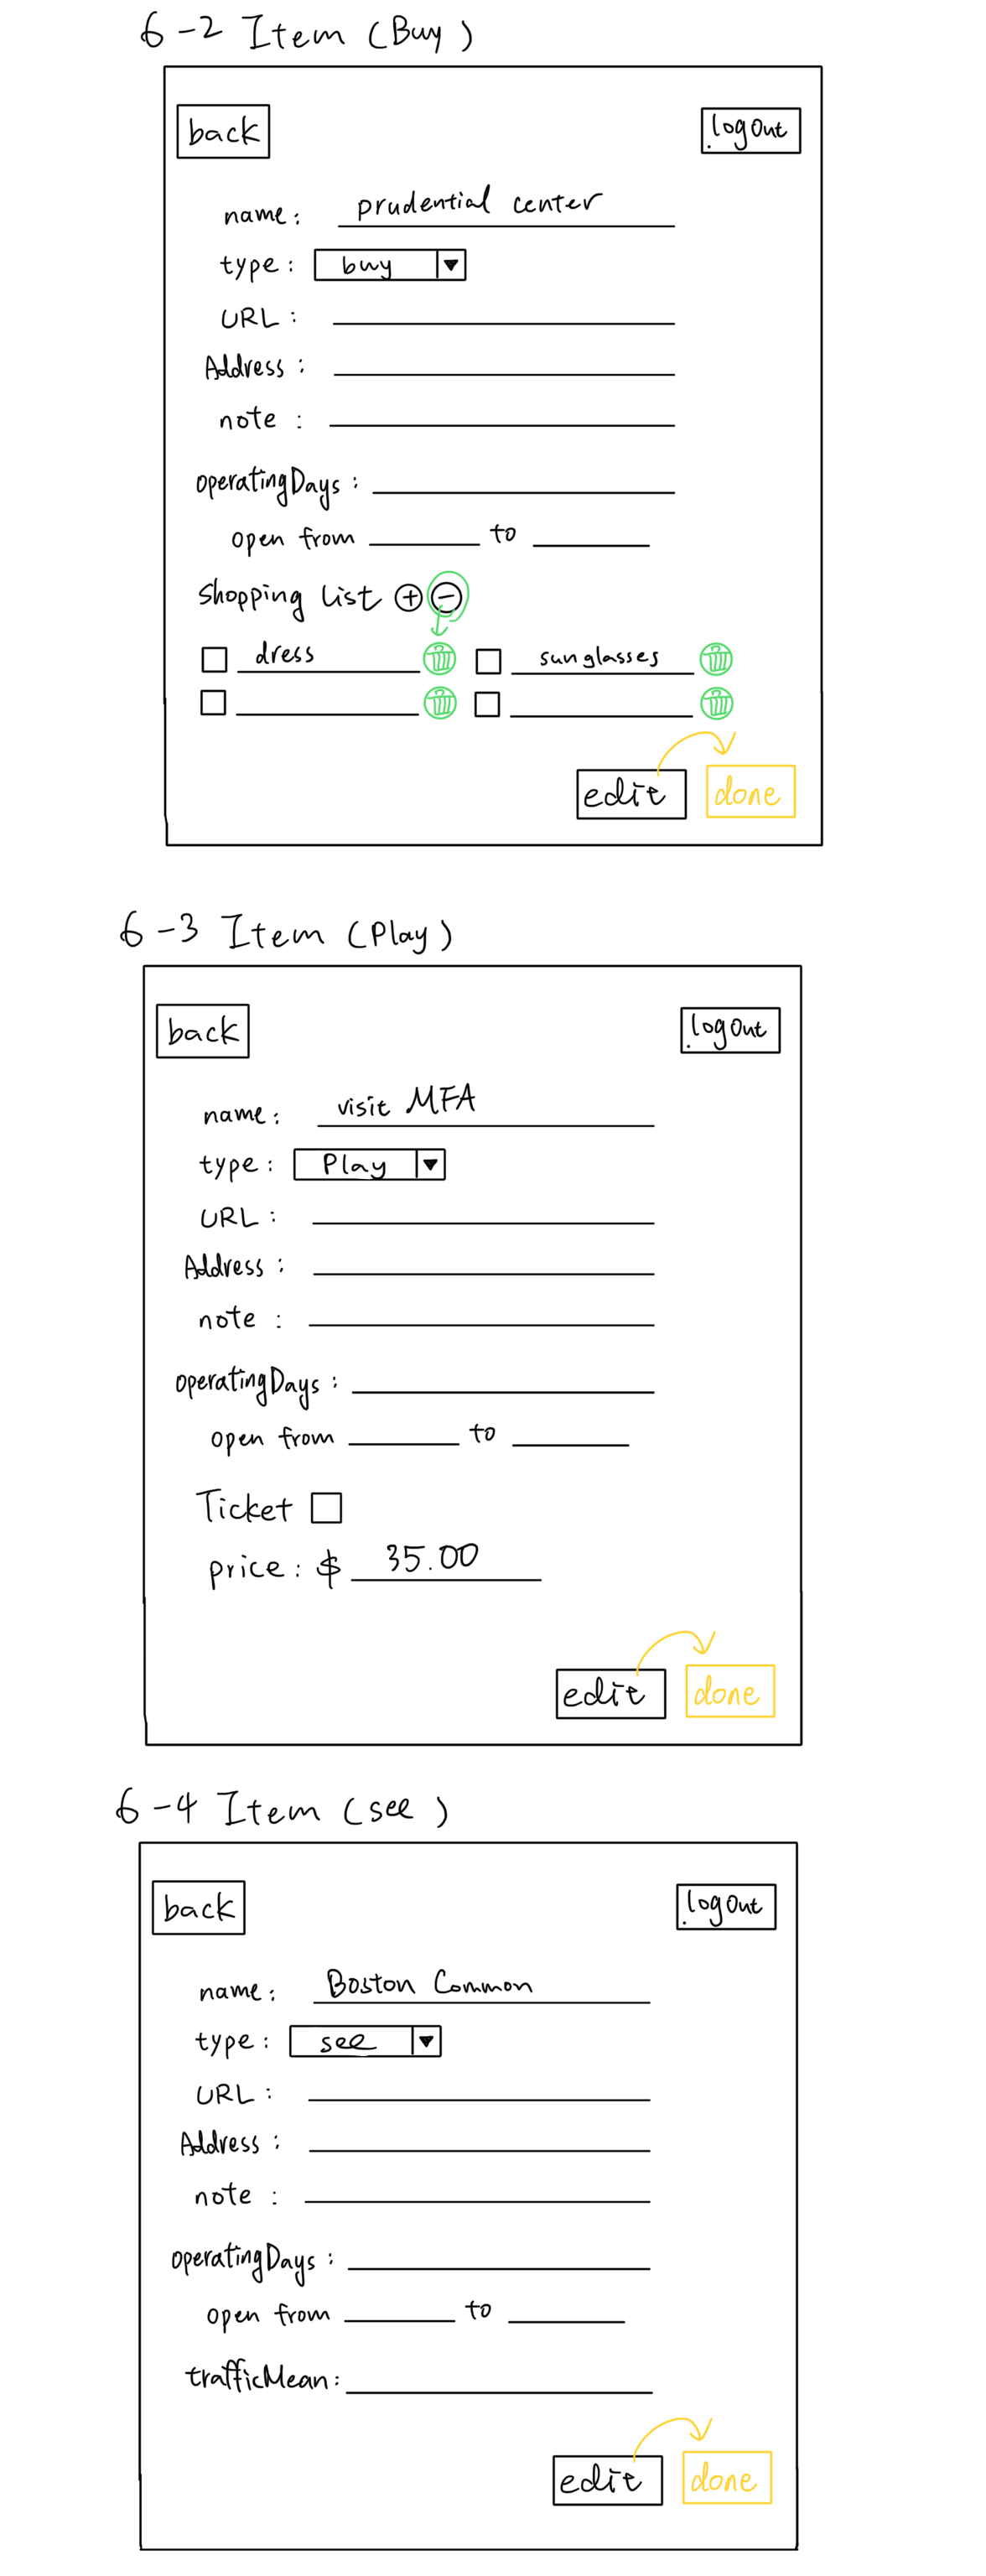 6-2 Item (Buy)
back
logout
name: prudential center
type: buy
URL:
Address:
note:
operatingDays:
open from to
shopping list + -
dress sunglasses
edit done
6-3 Item (Play)
back
logout
name: visit MFA
type: Play
URL:
Address:
note:
operatingDays:
open from to
Ticket
price: $ 35.00
edit done
6-4 Item (see)
back
logout
name: Boston Common
type: see
URL:
Address:
note:
operatingDays:
open from to
trafficMean:
edit done